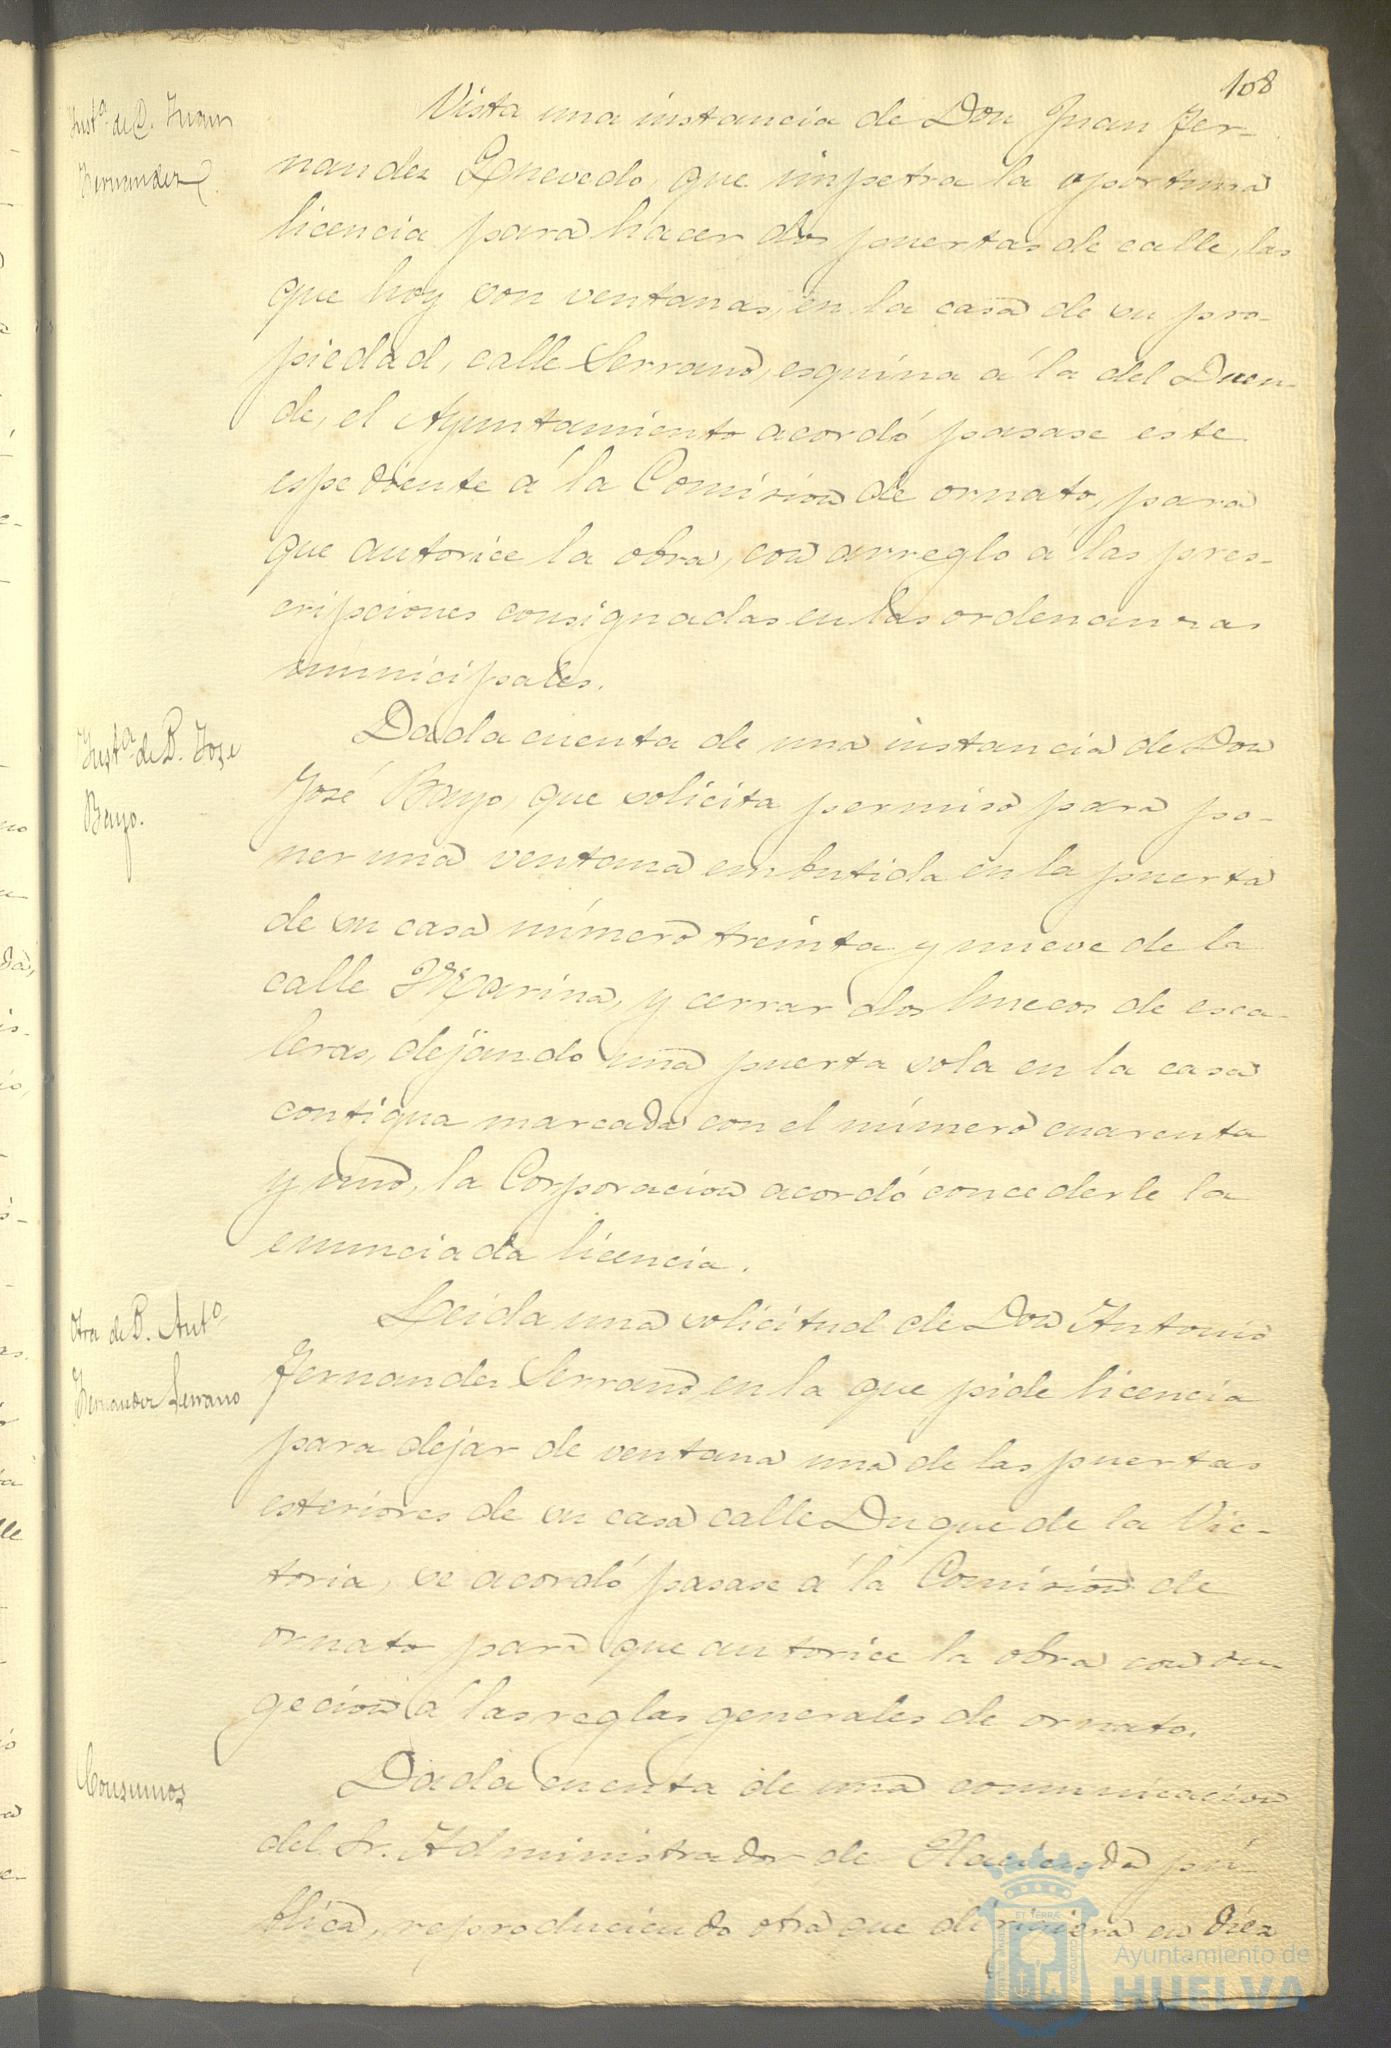 108
Inst.ª de D. Juan
Fernandez Q.
Vista una instancia de Don Juan Fer-
nandez Quevedo, que impetra la oportuna
licencia para hacer dos puertas de calle, las
que hoy son ventanas, en la casa de su pro-
piedad, calle Serrano, esquina á la del Duen-
de, el Ayuntamiento acordó pasase este
espediente á la Comision de ornato, para
que autorice la obra, con arreglo á las pres-
cripciones consignadas en las ordenanzas
municipales.
Inst.ª de D. José
Bayo.
Dada cuenta de una instancia de Don
José Bayo, que solicita permiso para po-
ner una ventana embutida en la puerta
de su casa número treinta y nueve de la
calle Marina, y cerrar dos huecos de esca-
leras, dejando una puerta sola en la casa
contigua marcada con el número cuarenta
y uno, la Corporacion acordó concederle la
enunciada licencia.
Otra de D. Ant.º
Fernandez Serrano
Leida una solicitud de Don Antonio
Fernandez Serrano, en la que pide licencia
para dejar de ventana una de las puertas
esteriores de su casa calle Duque de la Vic-
toria, se acordó pasase á la Comision de
ornato para que autorice la obra con su-
gecion á las reglas generales de ornato.
Consumos
Dada cuenta de una comunicacion
del Sr. Administrador de Hacienda pú-
blica, reproduciendo otra que dirigiera en diez
Ayuntamiento de
HUELVA